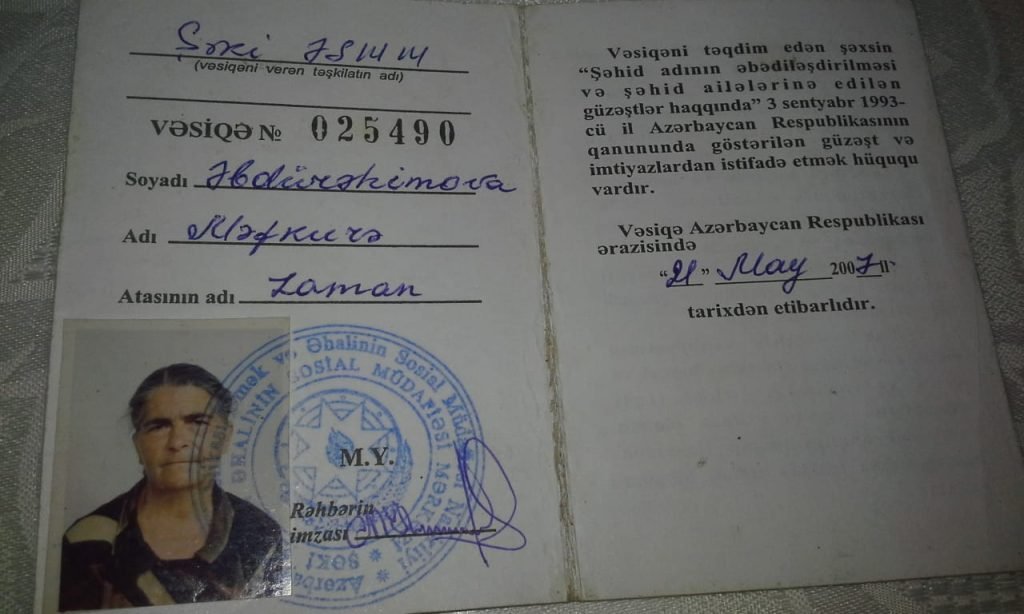 Şəki ƏSMM
(vəsiqəni verən təşkilatın adı)
VƏSİQƏ № 025490
Soyadı Əbdürəkimova
Adı Məfkurə
Atasının adı Zaman
M.Y.
Rəhbərin
imzası
Əhalinin Sosial
ƏHALİNİN SOSİAL MÜDAFİƏSİ
ŞƏKİ
Vəsiqəni təqdim edən şəxsin
“Şəhid adının əbədiləşdirilməsi
və şəhid ailələrinə edilən
güzəştlər haqqında” 3 sentyabr 1993-
cü il Azərbaycan Respublikasının
qanununda göstərilən güzəşt və
imtiyazlardan istifadə etmək hüququ
vardır.
Vəsiqə Azərbaycan Respublikası
ərazisində
“21” May 2007 il
tarixdən etibarlıdır.